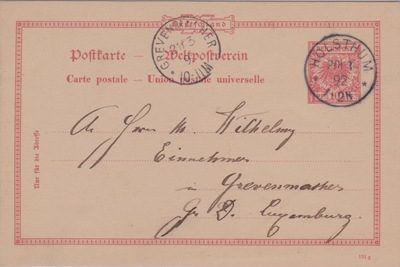 Deutschland
Postkarte — Weltpostverein
Carte postale — Union postale universelle
GREVENMACHER
HOLSTHUM
92
Nur für die Adresse
An Herrn M. Wilhelmy
Einnehmer
in Grevenmacher
Gr. D. Luxemburg.